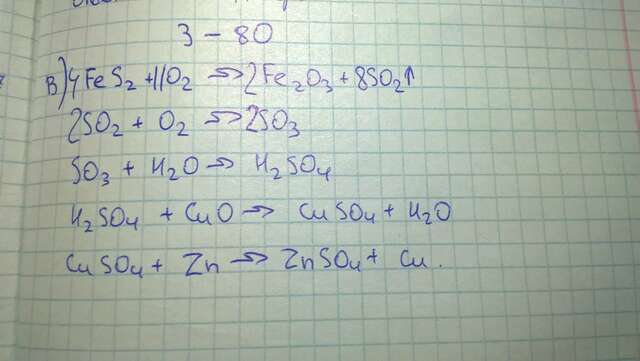 3 - 80
В) 4FeS₂ + 11O₂ → 2Fe₂O₃ + 8SO₂↑
2SO₂ + O₂ → 2SO₃
SO₃ + H₂O → H₂SO₄
H₂SO₄ + CuO → CuSO₄ + H₂O
CuSO₄ + Zn → ZnSO₄ + Cu.